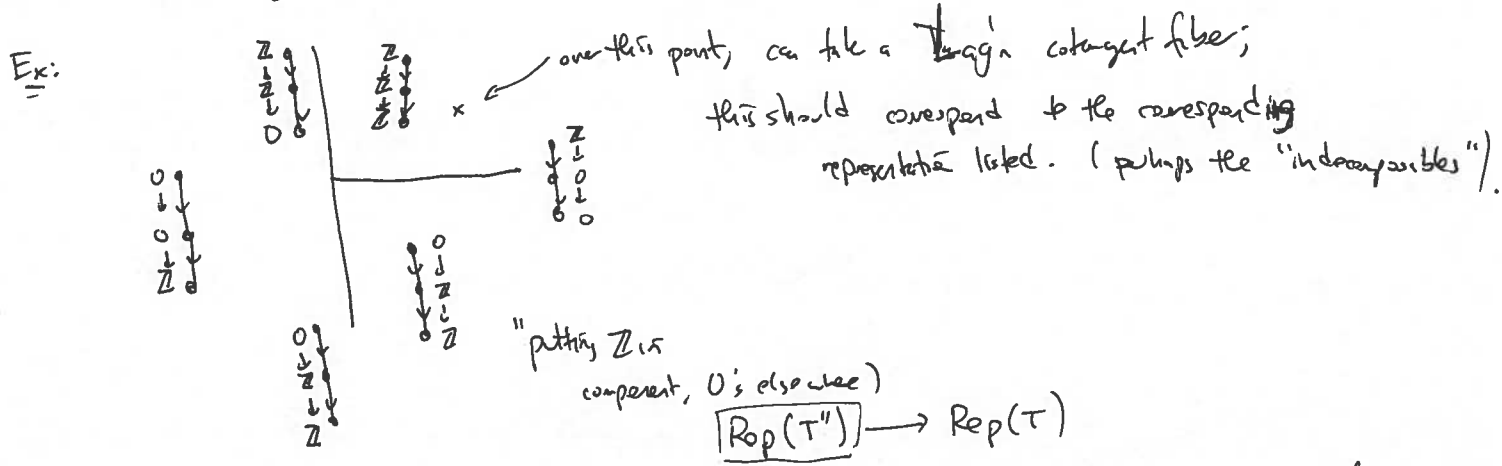 Ex:
over this point, can take a Lag'n cotangent fiber;
this should correspond to the corresponding
representation listed. (perhaps the "indecomposibles").
Z
↓
Z
↓
0
Z
↓
Z
↓
Z
x
Z
↓
0
↓
0
0
↓
0
↓
Z
0
↓
Z
↓
Z
0
↓
Z
↓
Z
"putting Z in
component, 0's elsewhere)
Rep(T") → Rep(T)